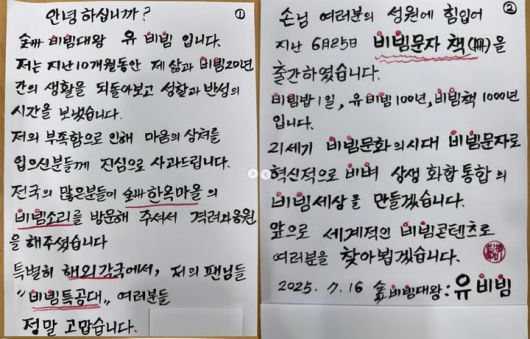 ①
안녕하십니까?
숲빠 비빔대왕 유비빔 입니다.
저는 지난 10개월동안 제 삶과 비빔20년
간의 생활을 되돌아보고 성찰과 반성의
시간을 보냈습니다.
저의 부족함으로 인해 마음의 상처를
입으신분들께 진심으로 사과드립니다.
전국의 많은분들이 한옥마을의
비빔소리를 방문해 주셔서 격려와응원
을 해주셨습니다
특별히 해외각국에서, 저의 팬님들
"비빔특공대" 여러분들
정말 고맙습니다.
②
손님 여러분의 성원에 힘입어
지난 6월25일 비빔문자 책(冊)을
출간하였습니다.
비빔밥 1일, 유비빔 100년, 비빔책 1000년
입니다.
21세기 비빔문화의시대 비빔문자로
혁신적으로 비벼 상생 화합 통합의
비빔세상을 만들겠습니다.
앞으로 세계적인 비빔콘텐츠로
여러분을 찾아뵙겠습니다.
2025. 7.16 비빔대왕: 유비빔